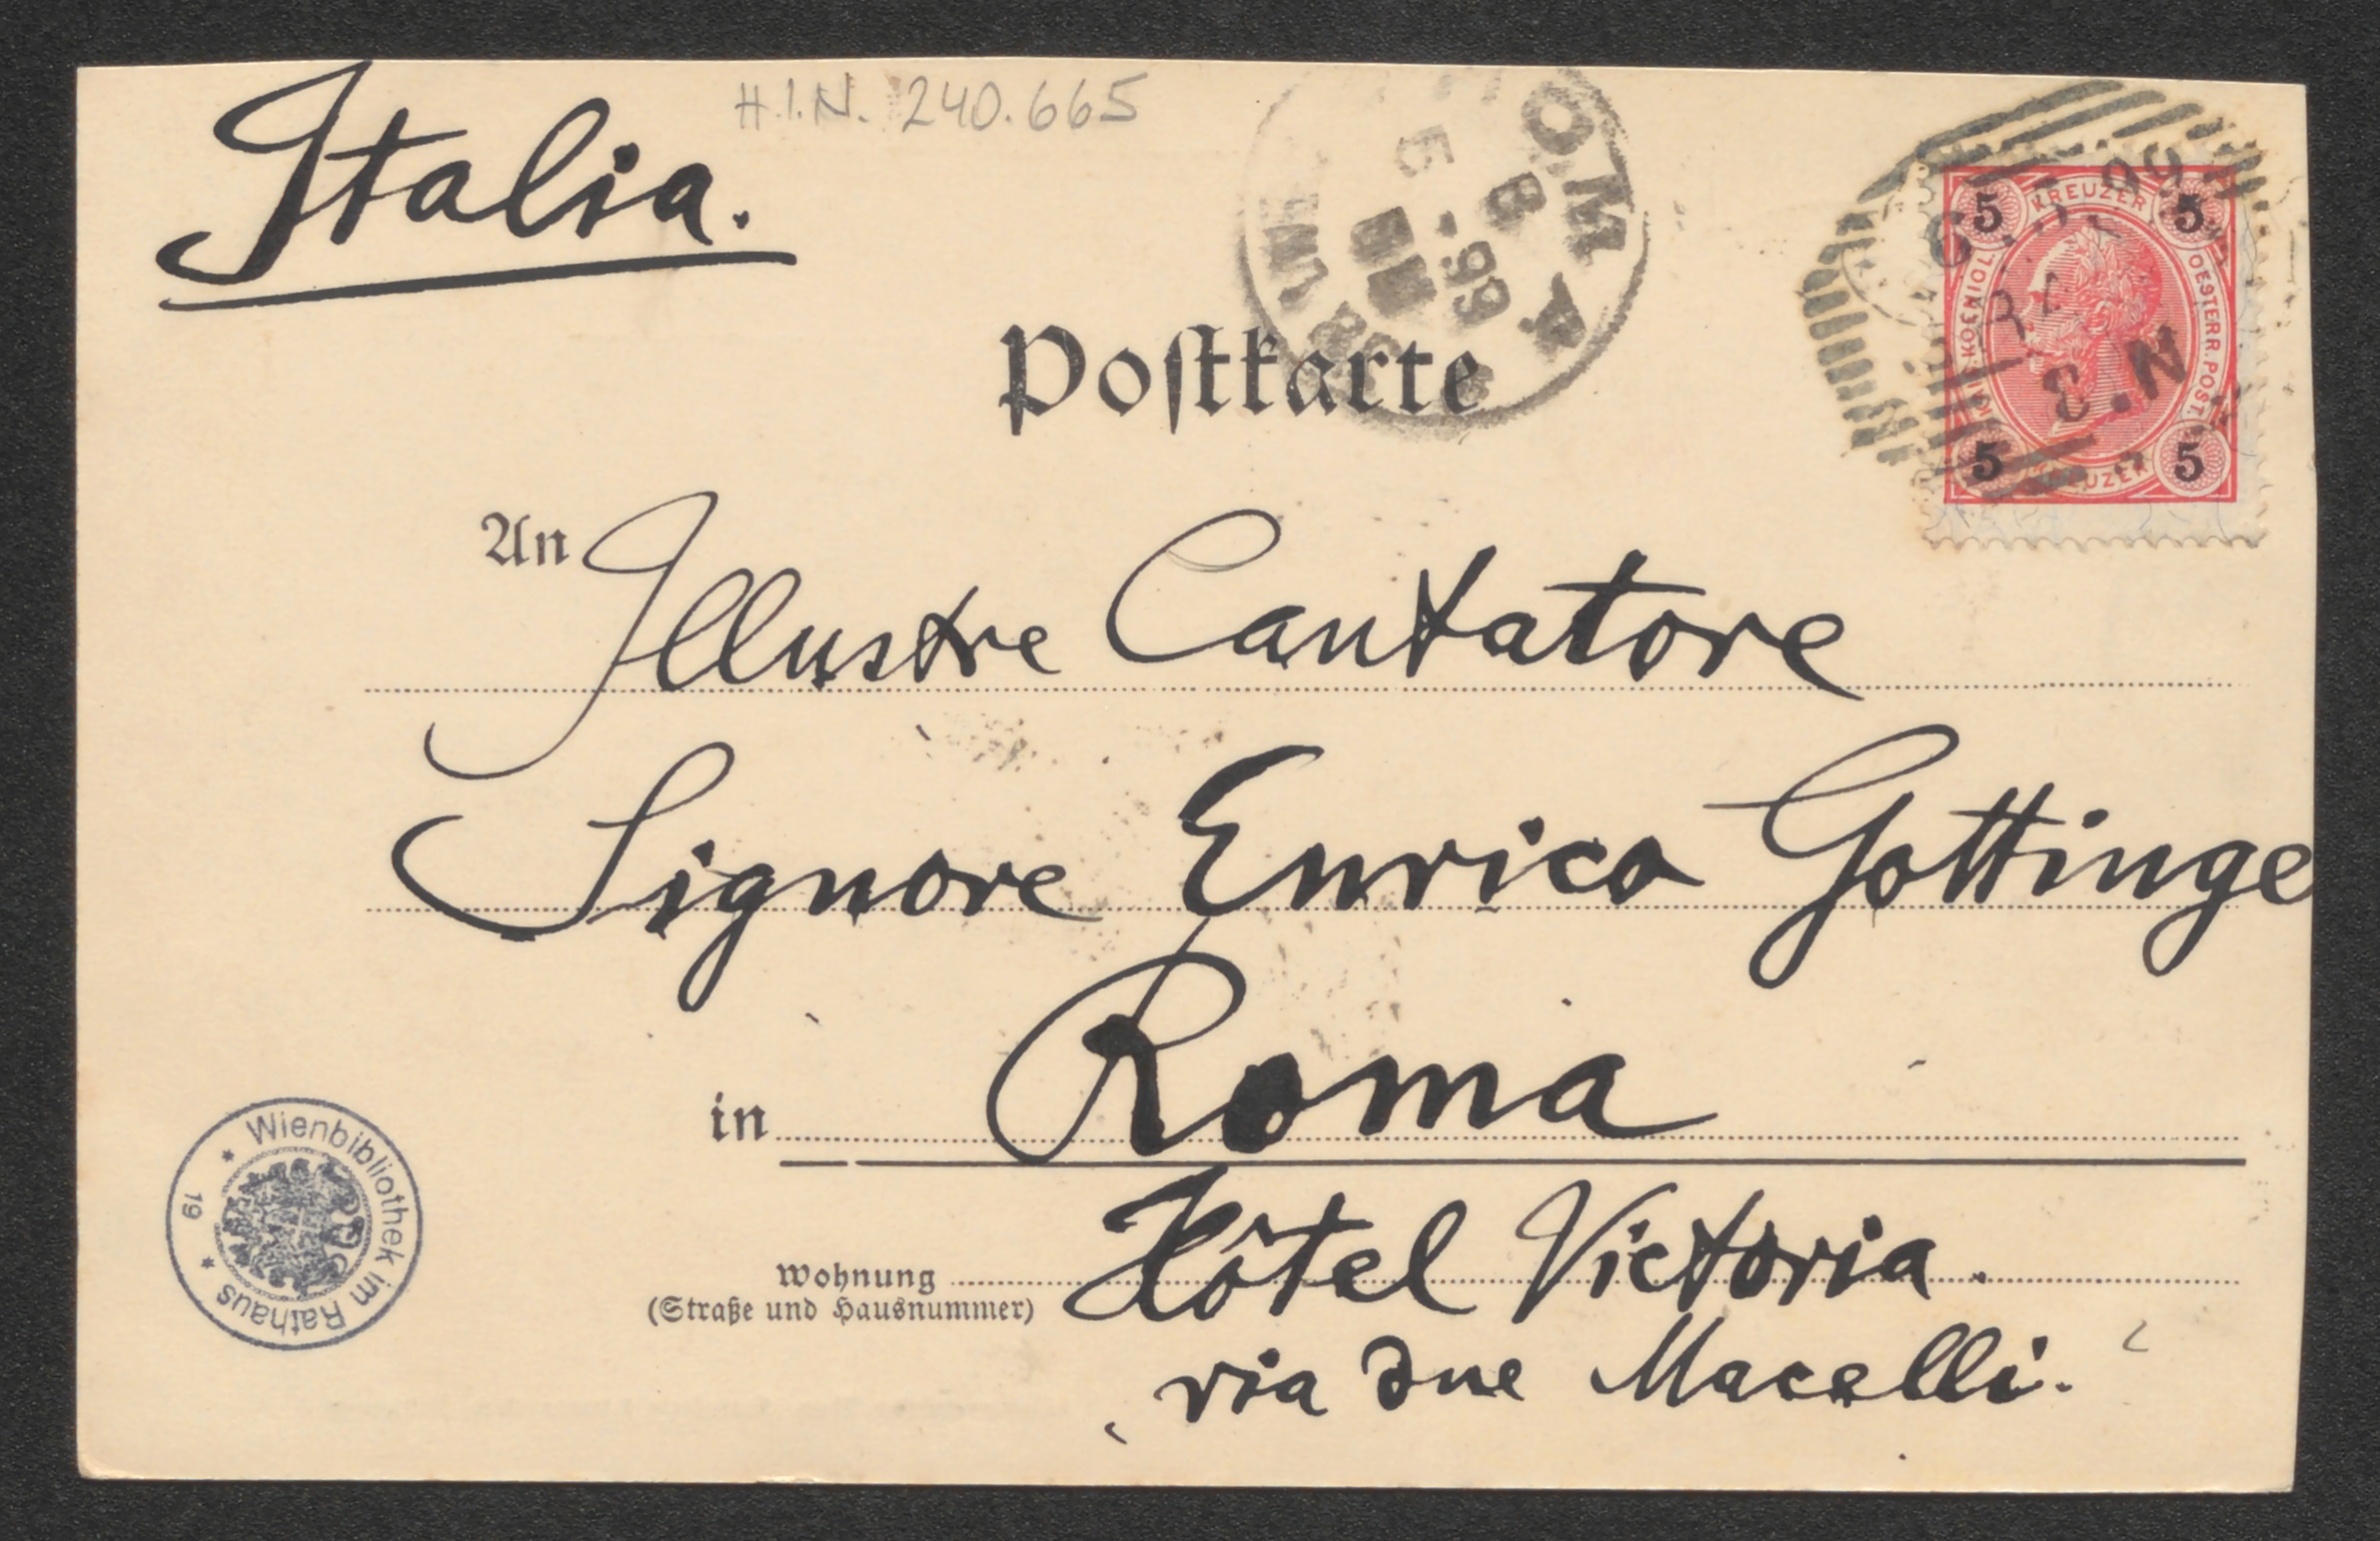 Italia.
H.I.N. 240.665
ROMA
8 - 99
5
5 KREUZER 5
OESTERR. POST.
5 KREUZER 5
6. 3. 99
8. N
Postkarte
An Illustre Cantatore
Signore Enrico Gottinge
in Roma
Wohnung
(Straße und Hausnummer)
Hôtel Victoria.
via due Macelli.
* Wienbibliothek im Rathaus *
19